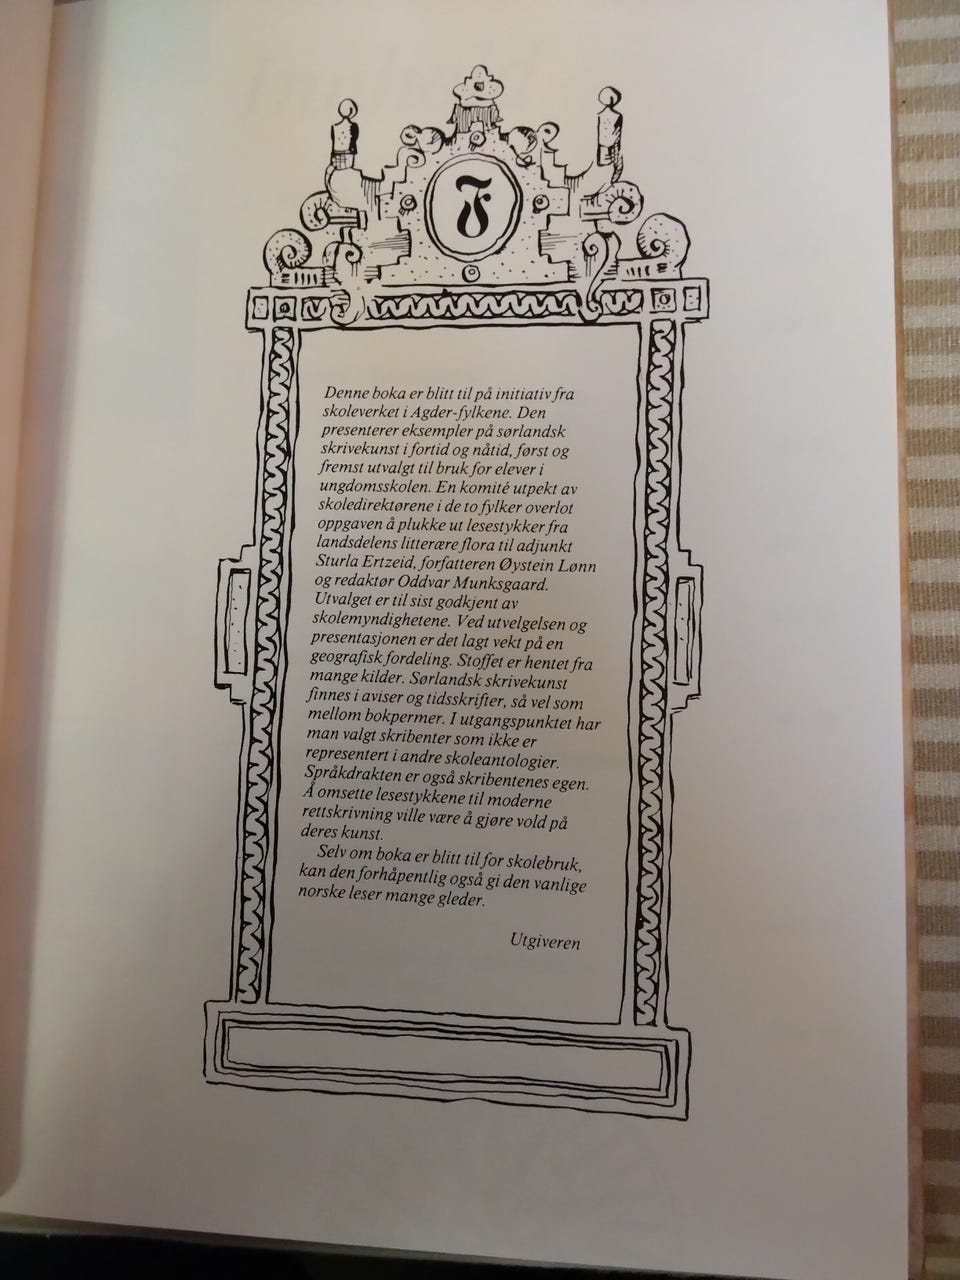 F
Denne boka er blitt til på initiativ fra
skoleverket i Agder-fylkene. Den
presenterer eksempler på sørlandsk
skrivekunst i fortid og nåtid, først og
fremst utvalgt til bruk for elever i
ungdomsskolen. En komité utpekt av
skoledirektørene i de to fylker overlot
oppgaven å plukke ut lesestykker fra
landsdelens litterære flora til adjunkt
Sturla Ertzeid, forfatteren Øystein Lønn
og redaktør Oddvar Munksgaard.
Utvalget er til sist godkjent av
skolemyndighetene. Ved utvelgelsen og
presentasjonen er det lagt vekt på en
geografisk fordeling. Stoffet er hentet fra
mange kilder. Sørlandsk skrivekunst
finnes i aviser og tidsskrifter, så vel som
mellom bokpermer. I utgangspunktet har
man valgt skribenter som ikke er
representert i andre skoleantologier.
Språkdrakten er også skribentenes egen.
Å omsette lesestykkene til moderne
rettskrivning ville være å gjøre vold på
deres kunst.
Selv om boka er blitt til for skolebruk,
kan den forhåpentlig også gi den vanlige
norske leser mange gleder.
Utgiveren